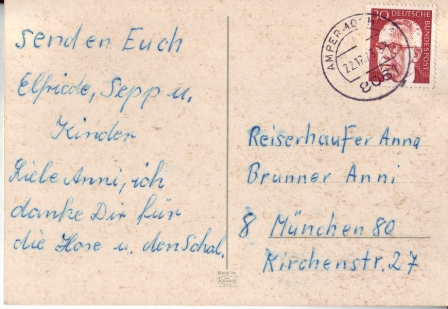 senden Euch
Elfriede, Sepp u.
Kinder
Liebe Anni, ich
danke Dir für
die Hose u. den Schal.
30 DEUTSCHE
BUNDESPOST
Reiserhaufer Anna
Brunner Anni
8 München 80
Kirchenstr. 27